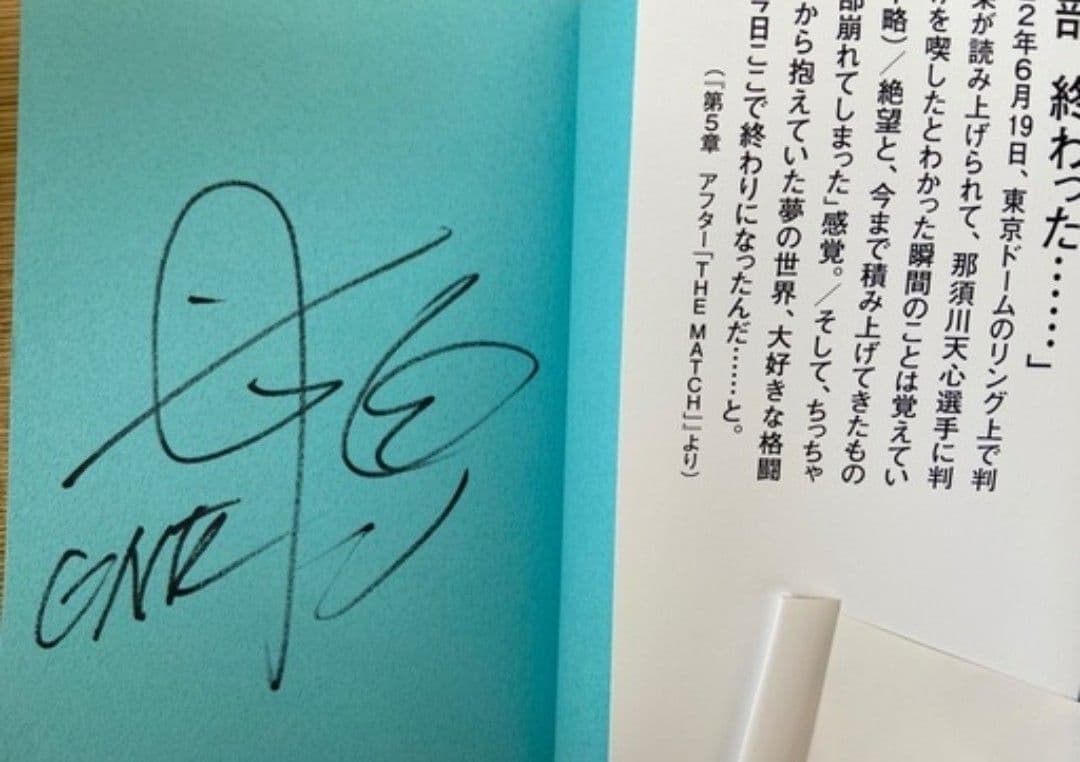 部 終わった……」
2年6月19日、東京ドームのリング上で判
が読み上げられて、那須川天心選手に判
を喫したとわかった瞬間のことは覚えてい
略)／絶望と、今まで積み上げてきたもの
部崩れてしまった」感覚。／そして、ちっちゃ
から抱えていた夢の世界、大好きな格闘
今日ここで終わりになったんだ……と。
(『第5章 アフター「THE MATCH」』より)
GNR